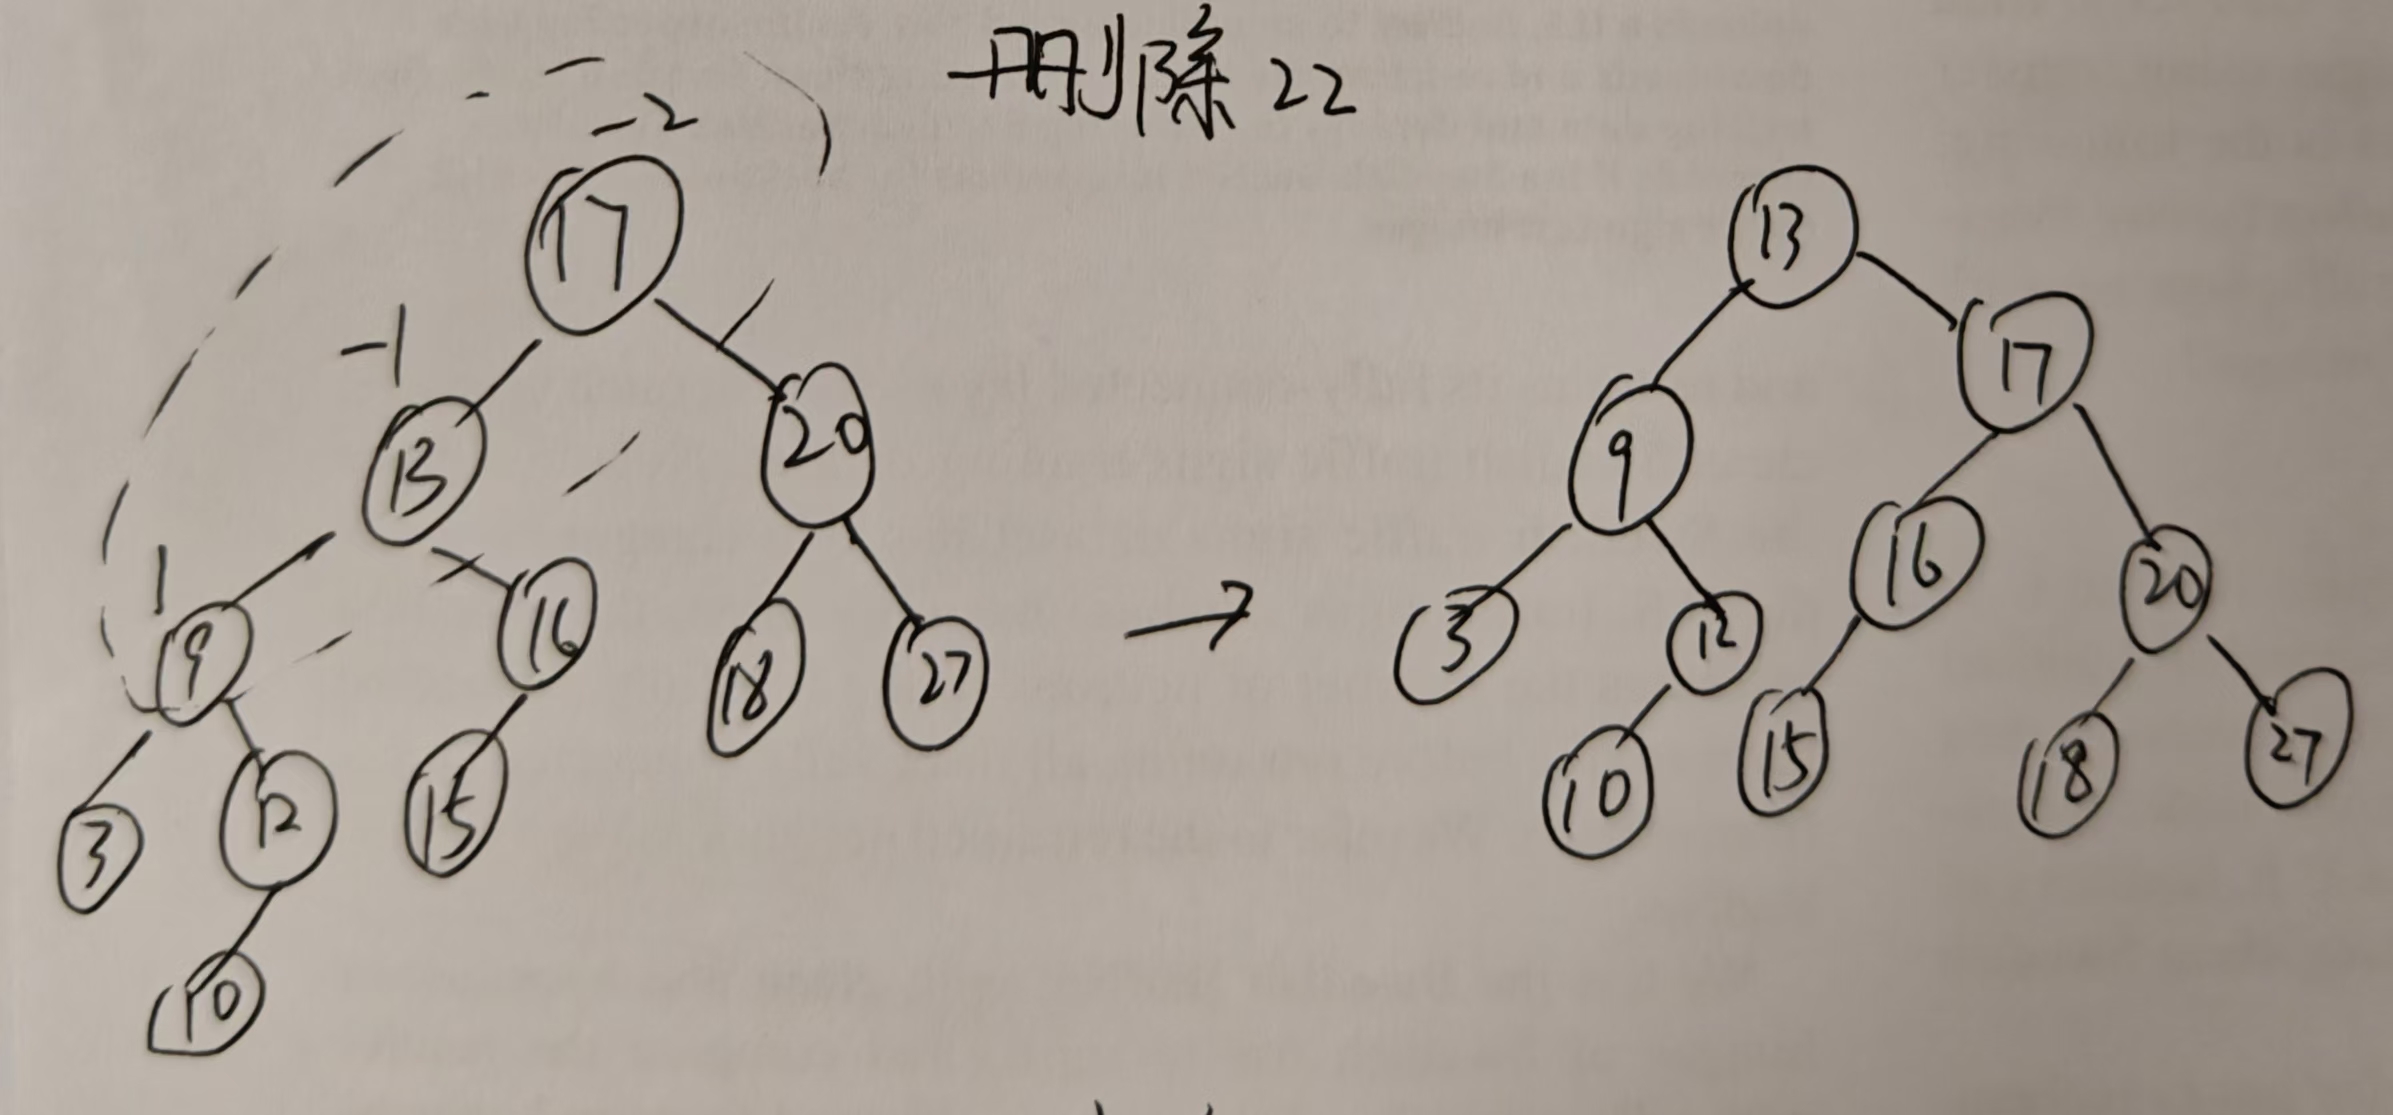 删除 22
-2
17
-1
13
20
1
9
16
18
27
3
12
15
10
13
17
9
16
20
3
12
10
15
18
27